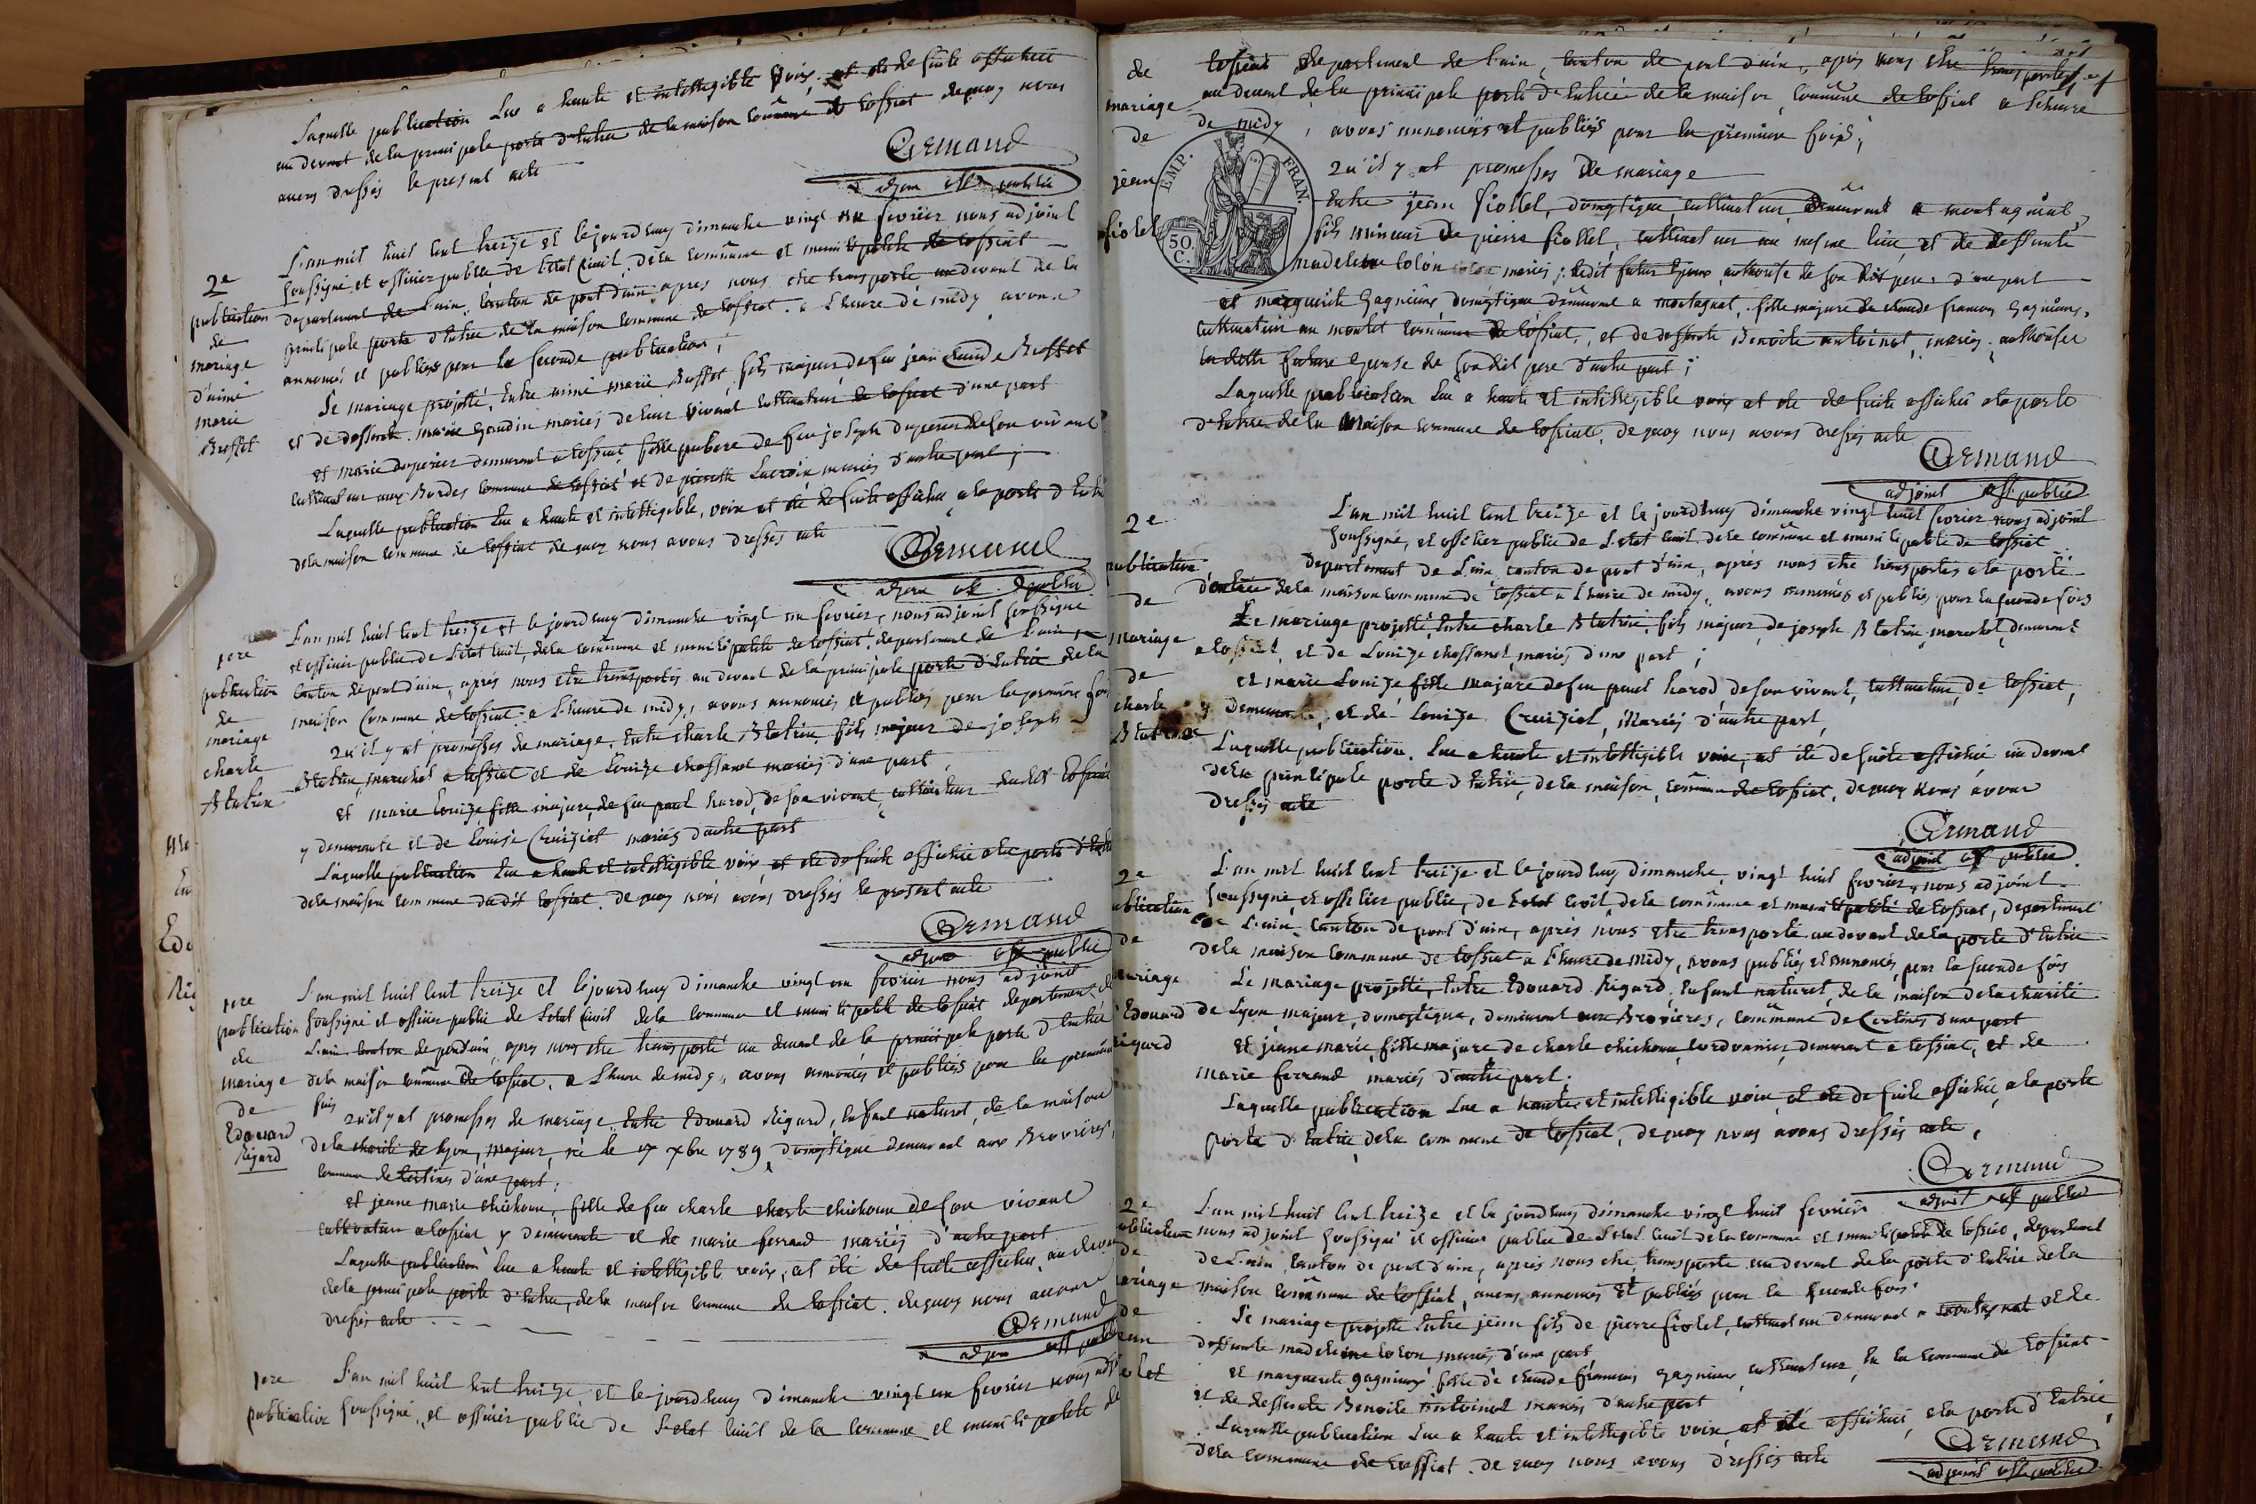 Laquelle publication Lue a haute et intelligible voix, et ete de suite affichée
au devant de la principale porte d'Entrée de la maison commune de tossiat dequoy nous
avons dressés le present acte
Armand
adjoin off public
2e
publication
de
mariage
d'aimé
marie
Brosset
L'an mil huit cent treize et le jourd'huy dimanche vingt un fevrier nous adjoint
soussigné et officier public de l'état Civil, dela commune et municipalité de tossiat
departement de Lain, canton de pont d'ain apres nous etre transporté audevant de la
principale porte d'Entrée de la maison commune de tossiat. a L'heure de midy avons
annoncé et publiés pour la seconde publication;
Le mariage projetté, Entre aimé marie Brosset, fils majeur de feu jean Claude Brosset
et de deffunte marie Goudin mariés de leur vivant cultivateurs de tossiat d'une part
et marie duperier demeurant a tossiat fille pubere de feu joseph duperier de son vivant
cultivateur aux Bordes commune de tossiat et de pierrette Lacroix mariés d'autre part;
Laquelle publication Lue a haute et intelligible, voix et été de suite affichée a la porte d'Entré
dela maison commune de tossiat de quoy nous avons dressés acte
Armand
adjoin off public
1ere
publication
de
mariage
charle
Blatrix
L'an mil huit cent treize et le jourd'huy dimanche vingt un fevrier, nous adjoint soussigné
et officier public de L'etat Civil, dela commune et municipalité de tossiat, departement de L'ain
canton de pont d'ain, après nous etre transportés au devant de la principale porte d'Entrée de la
maison Commune de tossiat, a L'heure de midy, avons annoncés et publiés pour la première fois
Qu'il y at promesses de mariage, Entre charle Blatrix fils majeur de joseph
Blatrix, marechal a tossiat et de Louize chassanet mariés d'une part,
et marie Louize fille majure, de feu paul harod, de son vivant, cultivateur dudit tossiat
y demeurante et de Louise Cruiziat mariés d'autre part
Laquelle publication Lue a haute et intelligible voix, et ete de suite affichée a la porte d'Entré
dela maison commune dudit tossiat. de quoy nous avons dressés le present acte
Armand
adjoin off public
1ere
publication
de
mariage
de
Edouard
Rigard
L'an mil huit cent treize et le jourd'huy dimanche vingt un fevrier nous adjoint
soussigné et officier public de L'etat Civil dela commune et municipalité de tossiat departement de
L'ain canton de pontdain, apres nous etre transporté au devant de la principale porte d'Entrée
dela maison commune de tossiat, a L'heure de midy, avons annoncés et publiés pour la premiere
fois
Qu'il y at promesses de mariage, Entre Edouard Rigard, Enfant naturel, de la maison
dela charité de Lyon, majeur, né le 17 xbre 1789, domestique demeurant aux Brovieres,
commune de Certines d'une part;
et jeane marie chichoux, fille de feu charle charle chichoux de son vivant
cultivateur a tossiat y demeurante et de marie ferrand mariés d'autre part
Laquelle publication Lue a haute et intelligible voix, et été de suite affichée, au devant
dela principale porte d'Entrée, dela maison commune de tossiat. dequoy nous avons
dressés acte
Armand
adjoin off public
1ere
publication
L'an mil huit cent treize et le jourd'huy dimanche vingt un fevrier nous adjt
soussigné, et officier public de L'etat Civil de la Commune et municipalité de
de
mariage
de
jean
fiolet
tossiat departement de L'ain, canton de pont d'ain, après nous etre transportés
au devant de la principale porte d'Entrée de la maison commune de tossiat a Lheure
de midy, avons annoncés et publiés pour la premiere fois;
EMP. FRAN.
50. C.
Qu'il y at promesses de mariage
Entre jean fiollet, domestique cultivateur, demeurant a montagnat,
fils mineur de pierre fiollet, cultivateur au mesme lieu et de deffunte
madeleine colon mariés; ledit futur Epoux, authorisé de son dit pere; d'une part
et marguerite Gagnieux domestique demeurant a montagnat, fille majure de claude francois Gagnieux,
cultivateur au montet commune de tossiat, et de deffunte Benoite antoinet, mariés, authorisée
la dite future Epouse de son dit pere d'autre part;
Laquelle publication Lue a haute et intelligible voix et ete de suite affichée a la porte
d'Entrée de la maison commune de tossiat. de quoy nous avons dressés acte
Armand
adjoint off public
2e
publication
de
mariage
de
charle
Blatrix
L'an mil huit cent treize et le jourd'huy dimanche vingt huit fevrier nous adjoint
soussigné, et officier public de L'etat Civil dela commune et municipalité de tossiat
departement de L'ain canton de pont d'ain, après nous etre transportés a la porte
d'Entrée dela maison commune de tossiat a L'heure de midy, avons annoncés et publiés pour la seconde fois
Le mariage projetté, Entre charle Blatrix, fils majeur, de joseph Blatrix marechal, demeurant
a tossiat, et de Louize chassanet mariés d'une part;
et marie Louize fille majure de feu paul harod, de son vivant, cultivateur, de tossiat,
y demeurante, et de Louize Cruiziat, Mariés d'autre part,
Laquelle publication. Lue a haute et intelligible voix, et été de suite affichée au devant
dela principale porte d'Entrée, de la maison, commune de tossiat, dequoy nous avons
dressés acte
Armand
adjoint off public
2e
publication
de
mariage
Edouard
rigard
L'an mil huit cent treize et le jourd'huy dimanche, vingt huit fevrier, nous adjoint
soussigné, et officier public, de Letat Civil dela commune et municipalité de tossiat, departement
de L'ain canton de pont d'ain, après nous etre transporté au devant dela porte d'Entrée
dela maison commune de tossiat a L'heure de midy, avons publiés et annoncés, pour la seconde fois
Le mariage projetté, Entre Edouard Rigard, Enfant naturel, de la maison dela charité
de Lyon majeur, domestique, demeurant aux Brovieres, commune de Certines d'une part
et jeane marie, fille majure de charle chichoux cordonnier, demeurant a tossiat, et de
marie ferrand mariés d'autre part;
Laquelle publication Lue a haute et intelligible voix, et ete de suite affichée, a la porte
porte d'Entrée dela commune de tossiat, de quoy nous avons dressés acte,
Armand
adjoint off public
2e
publication
de
mariage
de
jean
fiolet
L'an mil huit cent treize et le jourd'huy dimanche vingt huit fevrier
nous adjoint soussigné et officier public de L'etat Civil dela commune et municipalité de tossiat, departement
de L'ain, canton de pont d'ain, après nous etre, transporté au devant de la porte d'Entrée de la
maison commune de tossiat, avons annoncés et publiés pour la seconde fois
Le mariage projetté Entre jean fils de pierre fiolet, cultivateur demeurant a montagnat et de
deffunte madeleine colon mariés d'une part
et marguerite gagnieux fille de claude francois Gagnieux, cultivateur, en la commune de tossiat
et de deffunte Benoite Antoinet mariés d'autre part
Laquelle publication Lue a haute et intelligible voix, et été affichée, a la porte d'Entrée
dela commune de tossiat. de quoy nous avons dressés acte
Armand
adjoint off public